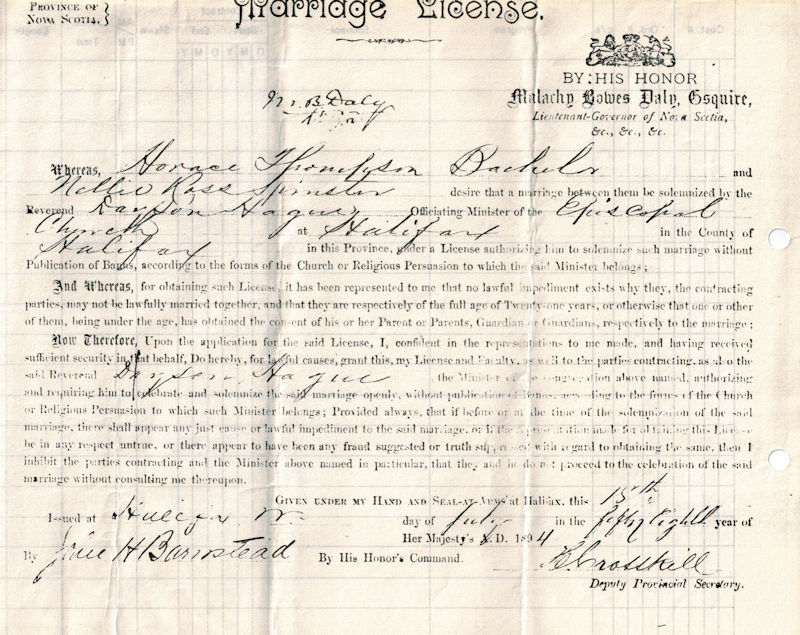 PROVINCE OF
NOVA SCOTIA.
Marriage License.
BY HIS HONOR
Malachy Bowes Daly, Esquire,
Lieutenant-Governor of Nova Scotia,
&c., &c., &c.
M. B. Daly
Whereas, Horace Thompson Bachelor and
Nellie Ross Spinster desire that a marriage between them be solemnized by the
Reverend Dayson Hague Officiating Minister of the Episcopal
Church at Halifax in the County of
Halifax in this Province, under a License authorizing him to solemnize such marriage without
Publication of Banns, according to the forms of the Church or Religious Persuasion to which the said Minister belongs;
And Whereas, for obtaining such License, it has been represented to me that no lawful impediment exists why they, the contracting
parties, may not be lawfully married together, and that they are respectively of the full age of Twenty-one years, or otherwise that one or other
of them, being under the age, has obtained the consent of his or her Parent or Parents, Guardian or Guardians, respectively to the marriage;
Now Therefore, Upon the application for the said License, I, confident in the representations to me made, and having received
sufficient security in that behalf, Do hereby, for lawful causes, grant this, my License and Faculty, as well to the parties contracting, as also the
said Reverend Dayson Hague the Minister of the congregation above named, authorizing
and requiring him to celebrate and solemnize the said marriage openly, without publication of Banns, according to the forms of the Church
or Religious Persuasion to which such Minister belongs; Provided always, that if before or at the time of the solemnization of the said
marriage, there shall appear any just cause or lawful impediment to the said marriage, or if the representation made for obtaining this License
be in any respect untrue, or there appear to have been any fraud suggested or truth suppressed with regard to obtaining the same, then I
inhibit the parties contracting and the Minister above named in particular, that they and he do not proceed to the celebration of the said
marriage without consulting me thereupon.
GIVEN UNDER MY HAND AND SEAL-AT-ARMS at Halifax, this 15th
Issued at Halifax day of July in the fifty eighth year of
Her Majesty's A. D. 1894
By H Barnstead By His Honor's Command. Crosskill
Deputy Provincial Secretary.